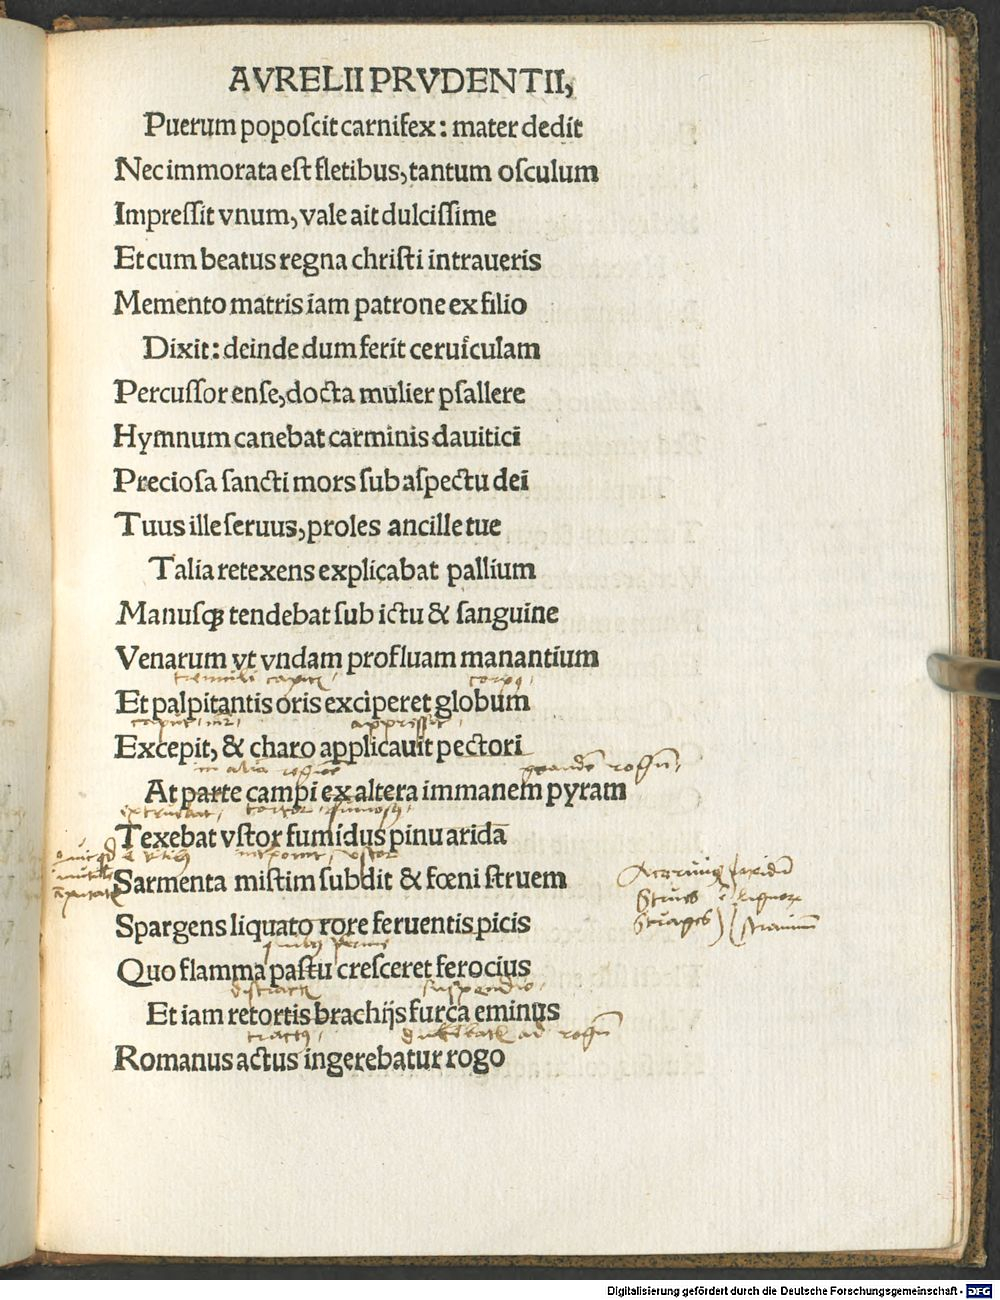 AVRELII PRVDENTII,
Puerum poposcit carnifex: mater dedit
Nec immorata est fletibus, tantum osculum
Impressit vnum, vale ait dulcissime
Et cum beatus regna christi intraueris
Memento matris iam patrone ex filio
Dixit: deinde dum ferit ceruiculam
Percussor ense, docta mulier psallere
Hymnum canebat carminis dauitici
Preciosa sancti mors sub aspectu dei
Tuus ille seruus, proles ancille tue
Talia retexens explicabat pallium
Manusqꝫ tendebat sub ictu & sanguine
Venarum vt vndam profluam manantium
corpꝯ
Et palpitantis oris exciperet globum
Excepit, & charo applicauit pectori
in alia
At parte campi ex altera immanem pyram
Texebat vstor fumidus pinu aridā
Sarmenta mistim subdit & fœni struem
Aceruus lapidū
Strues lignorꝝ
Strages straminū
Spargens liquato rore feruentis picis
Quo flamma pastu cresceret ferocius
suspendio
Et iam retortis brachijs furca eminus
tractꝯ ad rogū
Romanus actus ingerebatur rogo
Digitalisierung gefördert durch die Deutsche Forschungsgemeinschaft - DFG